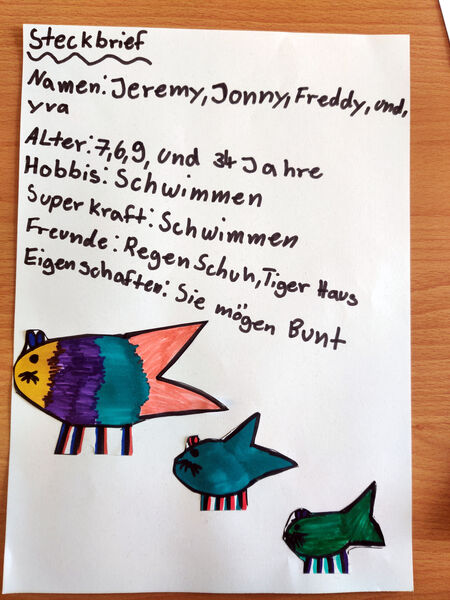 Steckbrief
Namen: Jeremy, Jonny, Freddy, und,
yva
Alter: 7,6,9, und 34 Jahre
Hobbis: Schwimmen
Superkraft: Schwimmen
Freunde: Regen Schuh, Tiger Haus
Eigenschaften: Sie mögen Bunt